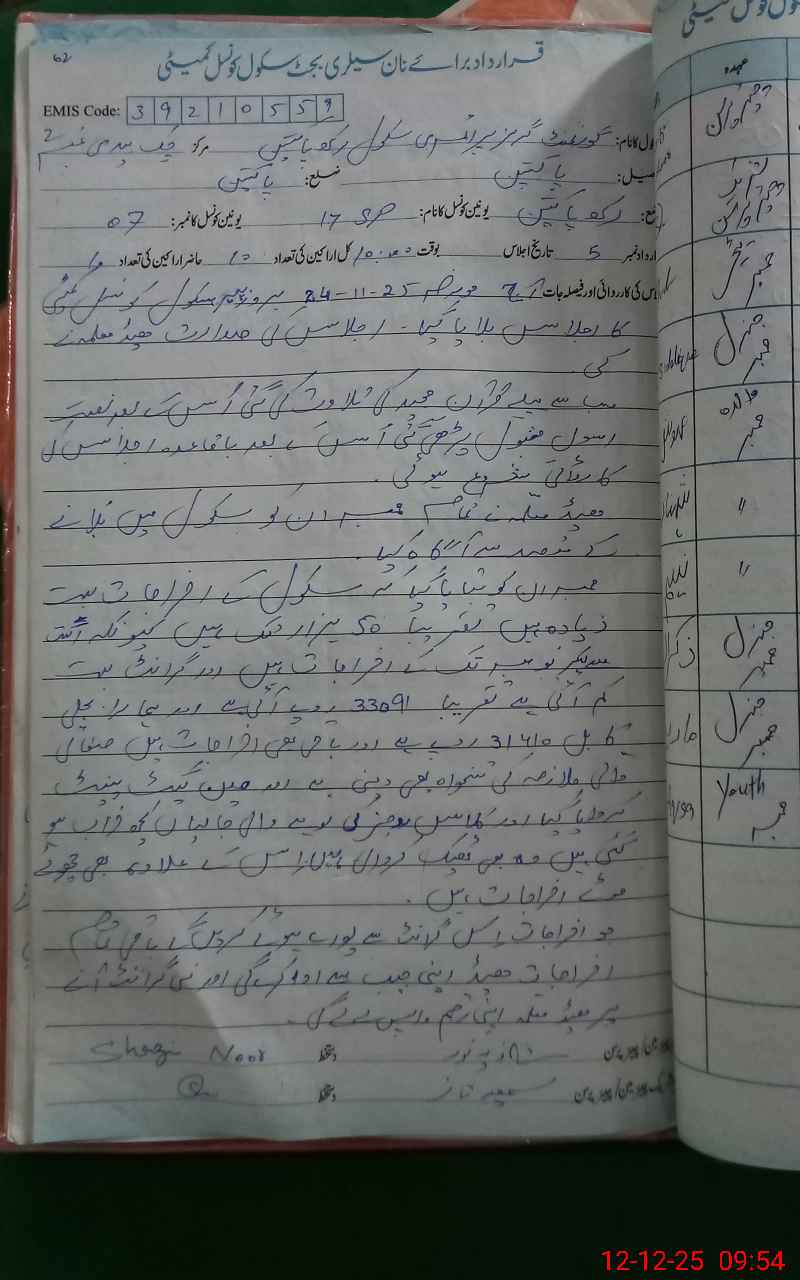 62
قرارداد برائے نان سیلری بجٹ سکول کونسل کمیٹی
EMIS Code: 39210559
ول کا نام: گورنمنٹ گرلز پرائمری سکول رکھ پاکپتن مرکز چک بیدی نمبر 2
میل: پاکپتن ضلع: پاکپتن
رکھ پاکپتن یونین کونسل کا نام: 17 SP یونین کونسل کا نمبر: 07
اردادنمبر 5 تاریخ اجلاس بوقت 10:00 کل اراکین کی تعداد 10 حاضر اراکین کی تعداد
اس کی کارروائی اور فیصلہ جات آج مورخہ 24-11-25 بروز پیر سکول کونسل کمیٹی
کا اجلاس بلایا گیا۔ اجلاس کی صدارت ہیڈ معلمہ نے
کی۔
سب سے پہلے قرآن مجید کی تلاوت کی گئی اُس کے بعد نعت
رسول مقبول پڑھی گئی اس کے بعد باقاعدہ اجلاس کی
کاروائی شروع ہوئی۔
ہیڈ معلمہ نے تمام ممبران کو سکول میں بلانے
کے مقصد سے آگاہ کیا۔
ممبران کو بتایا گیا کہ سکول کے اخراجات بہت
زیادہ ہیں تقریباً 50 ہزار تک ہیں کیونکہ اگست
سے لیکر نومبر تک کے اخراجات ہیں اور گرانٹ بہت
کم آئی ہے تقریباً 33091 روپے آئی ہے اور ہمارا بجلی
کا بل 31410 روپے ہے اور باقی بھی اخراجات ہیں صفائی
والی ملازمہ کی تنخواہ بھی دینی ہے اور مین گیٹ پینٹ
کروایا گیا اور کلاس رومز کی لوہے والی جالیاں کچھ خراب ہو
گئی ہیں وہ بھی ٹھیک کروانی ہیں اس کے علاوہ بھی چھوٹے
موٹے اخراجات ہیں۔
جو اخراجات اس گرانٹ سے پورے ہوئے کر دیں گے باقی تمام
اخراجات ہیڈ اپنی جیب سے ادا کرے گی اور نئی گرانٹ آنے
پر ہیڈ معلمہ اپنی رقم واپس لے لے گی۔
شازیہ نور دستخط Shazi Noor
دستخط
عہدہ
چیئرپرسن
ممبر
جنرل
ممبر
والدہ
ممبر
〃
〃
جنرل
ممبر
جنرل
ممبر
Youth
ممبر
12-12-25 09:54